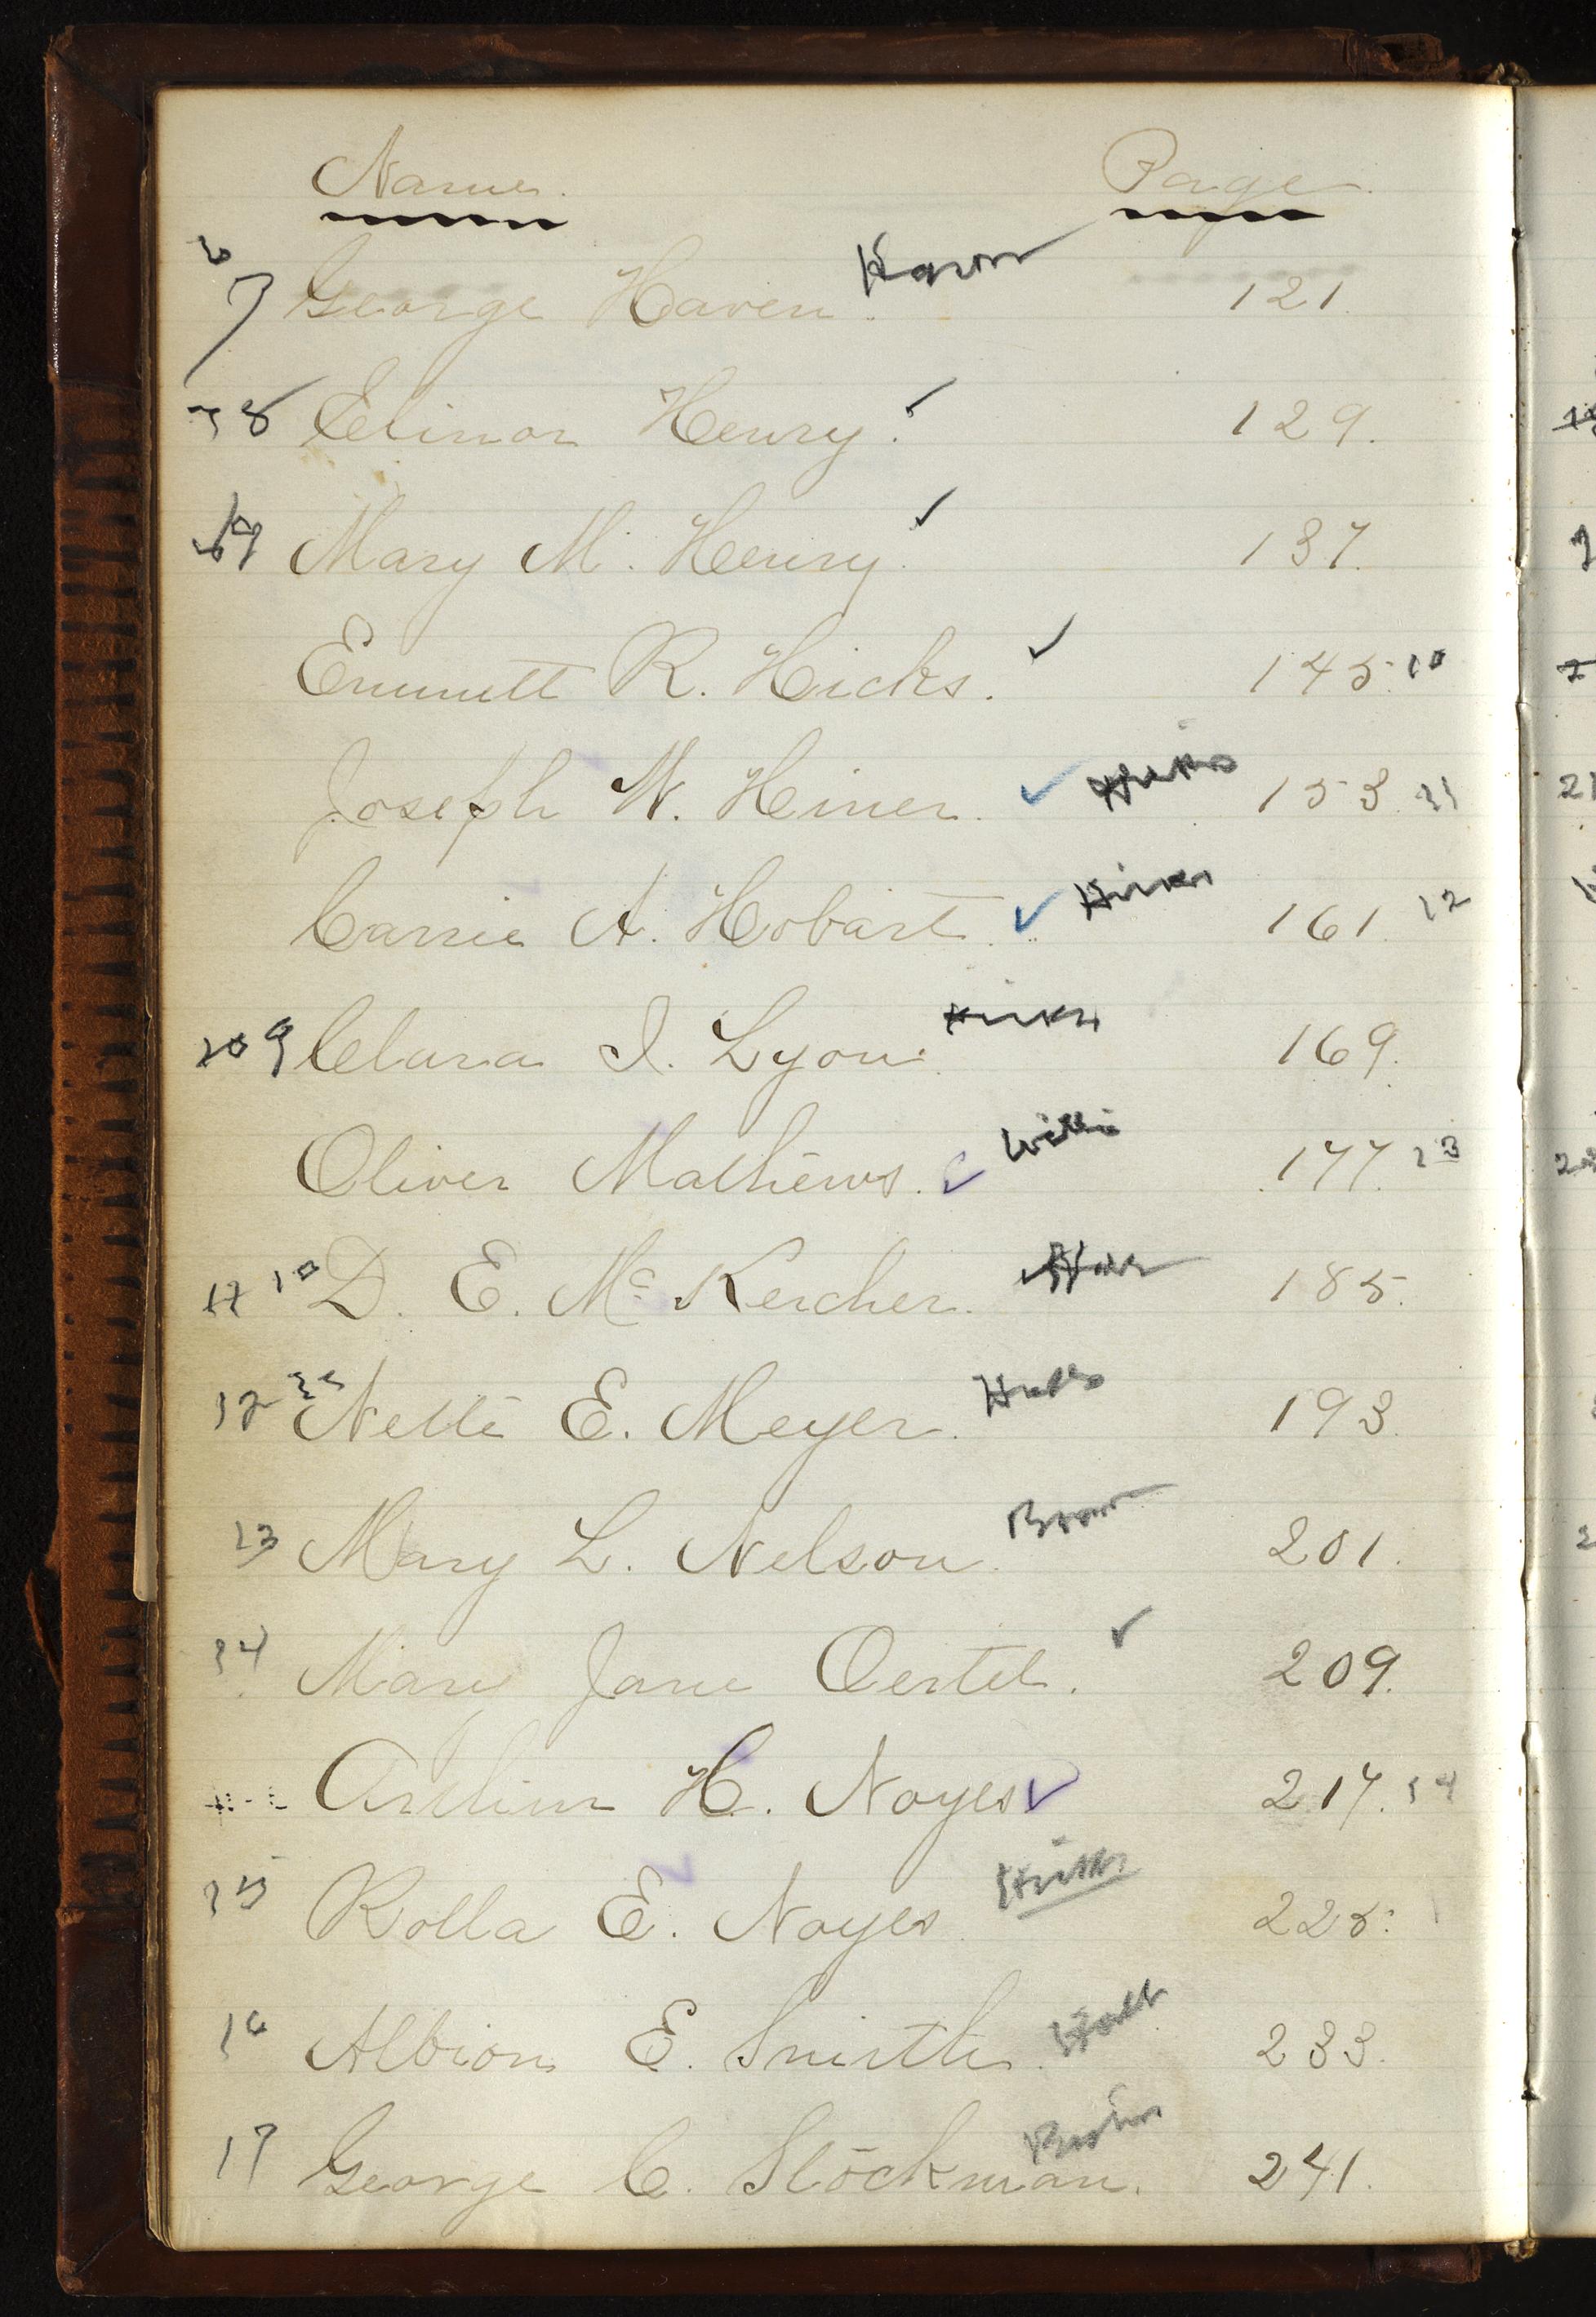 Name. Page.
7 George Haven. 121.
8 Elinor Henry. ✓ 129.
9 Mary M. Henry. ✓ 137.
Emmett R. Hicks. ✓ 145. 10
Joseph W. Hiner. ✓ 153. 11
Carrie A. Hobart. ✓ 161. 12
10 9 Clara I. Lyon. 169.
Oliver Mathews. ✓ 177. 13
11 10 D. E. Mc Kercher. 185.
12 Nelli E. Meyer. 193.
13 Mary L. Nelson. Brown 201.
14 Mary Jane Oertel. ✓ 209.
Arthur H. Noyes ✓ 217. 14
15 Rolla E. Noyes 225.
16 Albion E. Smith. 233.
17 George C. Stockman. 241.